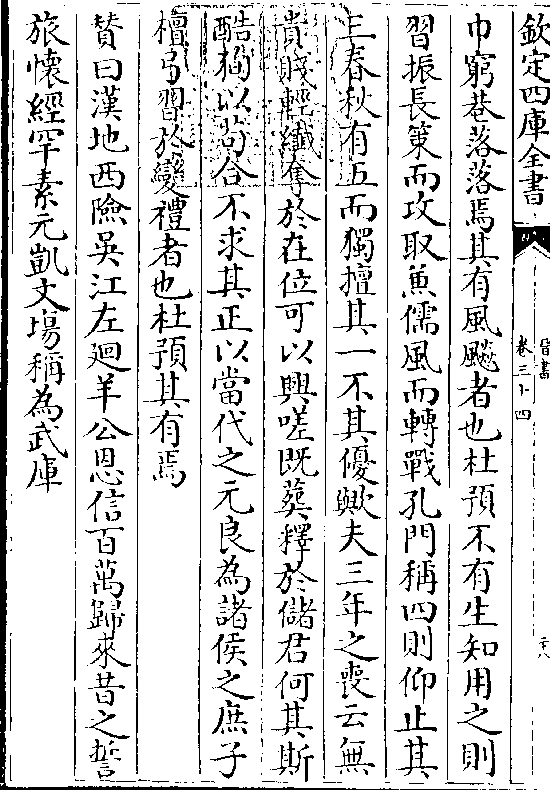 欽定四庫全書
晉書
卷三十四
巾窮巷落落焉其有風飈者也杜預不有生知用之則
習振長策而攻取兼儒風而轉戰孔門稱四則仰止其
三春秋有五而獨擅其一不其優歟夫三年之喪云無
貴賤輕纖奪於在位可以興嗟既葬釋於儲君何其斯
酷徇以苟合不求其正以當代之元良為諸侯之庶子
檀弓習於變禮者也杜預其有焉
賛曰漢地西險吳江左廻羊公恩信百萬歸來昔之誓
旅懷經罕素元凱文塲稱為武庫